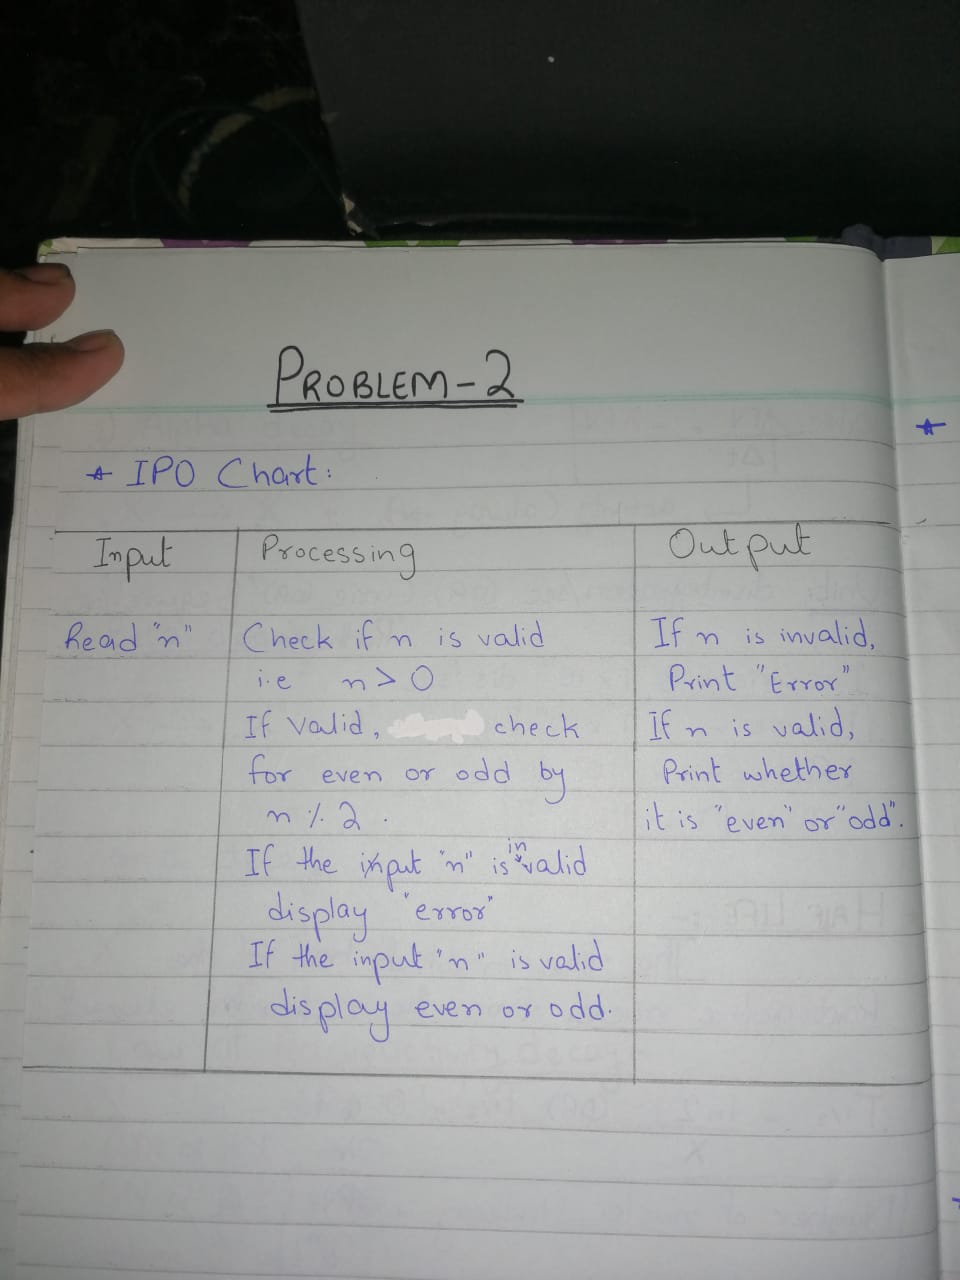 PROBLEM-2
* IPO Chart:
Input
Processing
Output
Read "n"
Check if n is valid
i.e n > 0
If Valid, check
for even or odd by
n % 2 .
If the input "n" is invalid
display "error"
If the input "n" is valid
display even or odd.
If n is invalid,
Print "Error"
If n is valid,
Print whether
it is "even" or "odd".